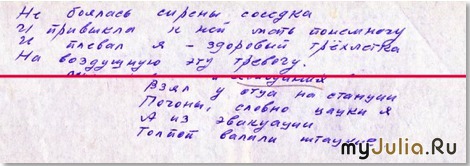 Не боялась сирены соседка
И привыкла к ней мать понемногу
И плевал я – здоровый трёхлетка
На воздушную эту тревогу.
Взял у отца на станции
Погоны, словно цацки я
А из эвакуации
Толпой валили штатские
myJulia.Ru